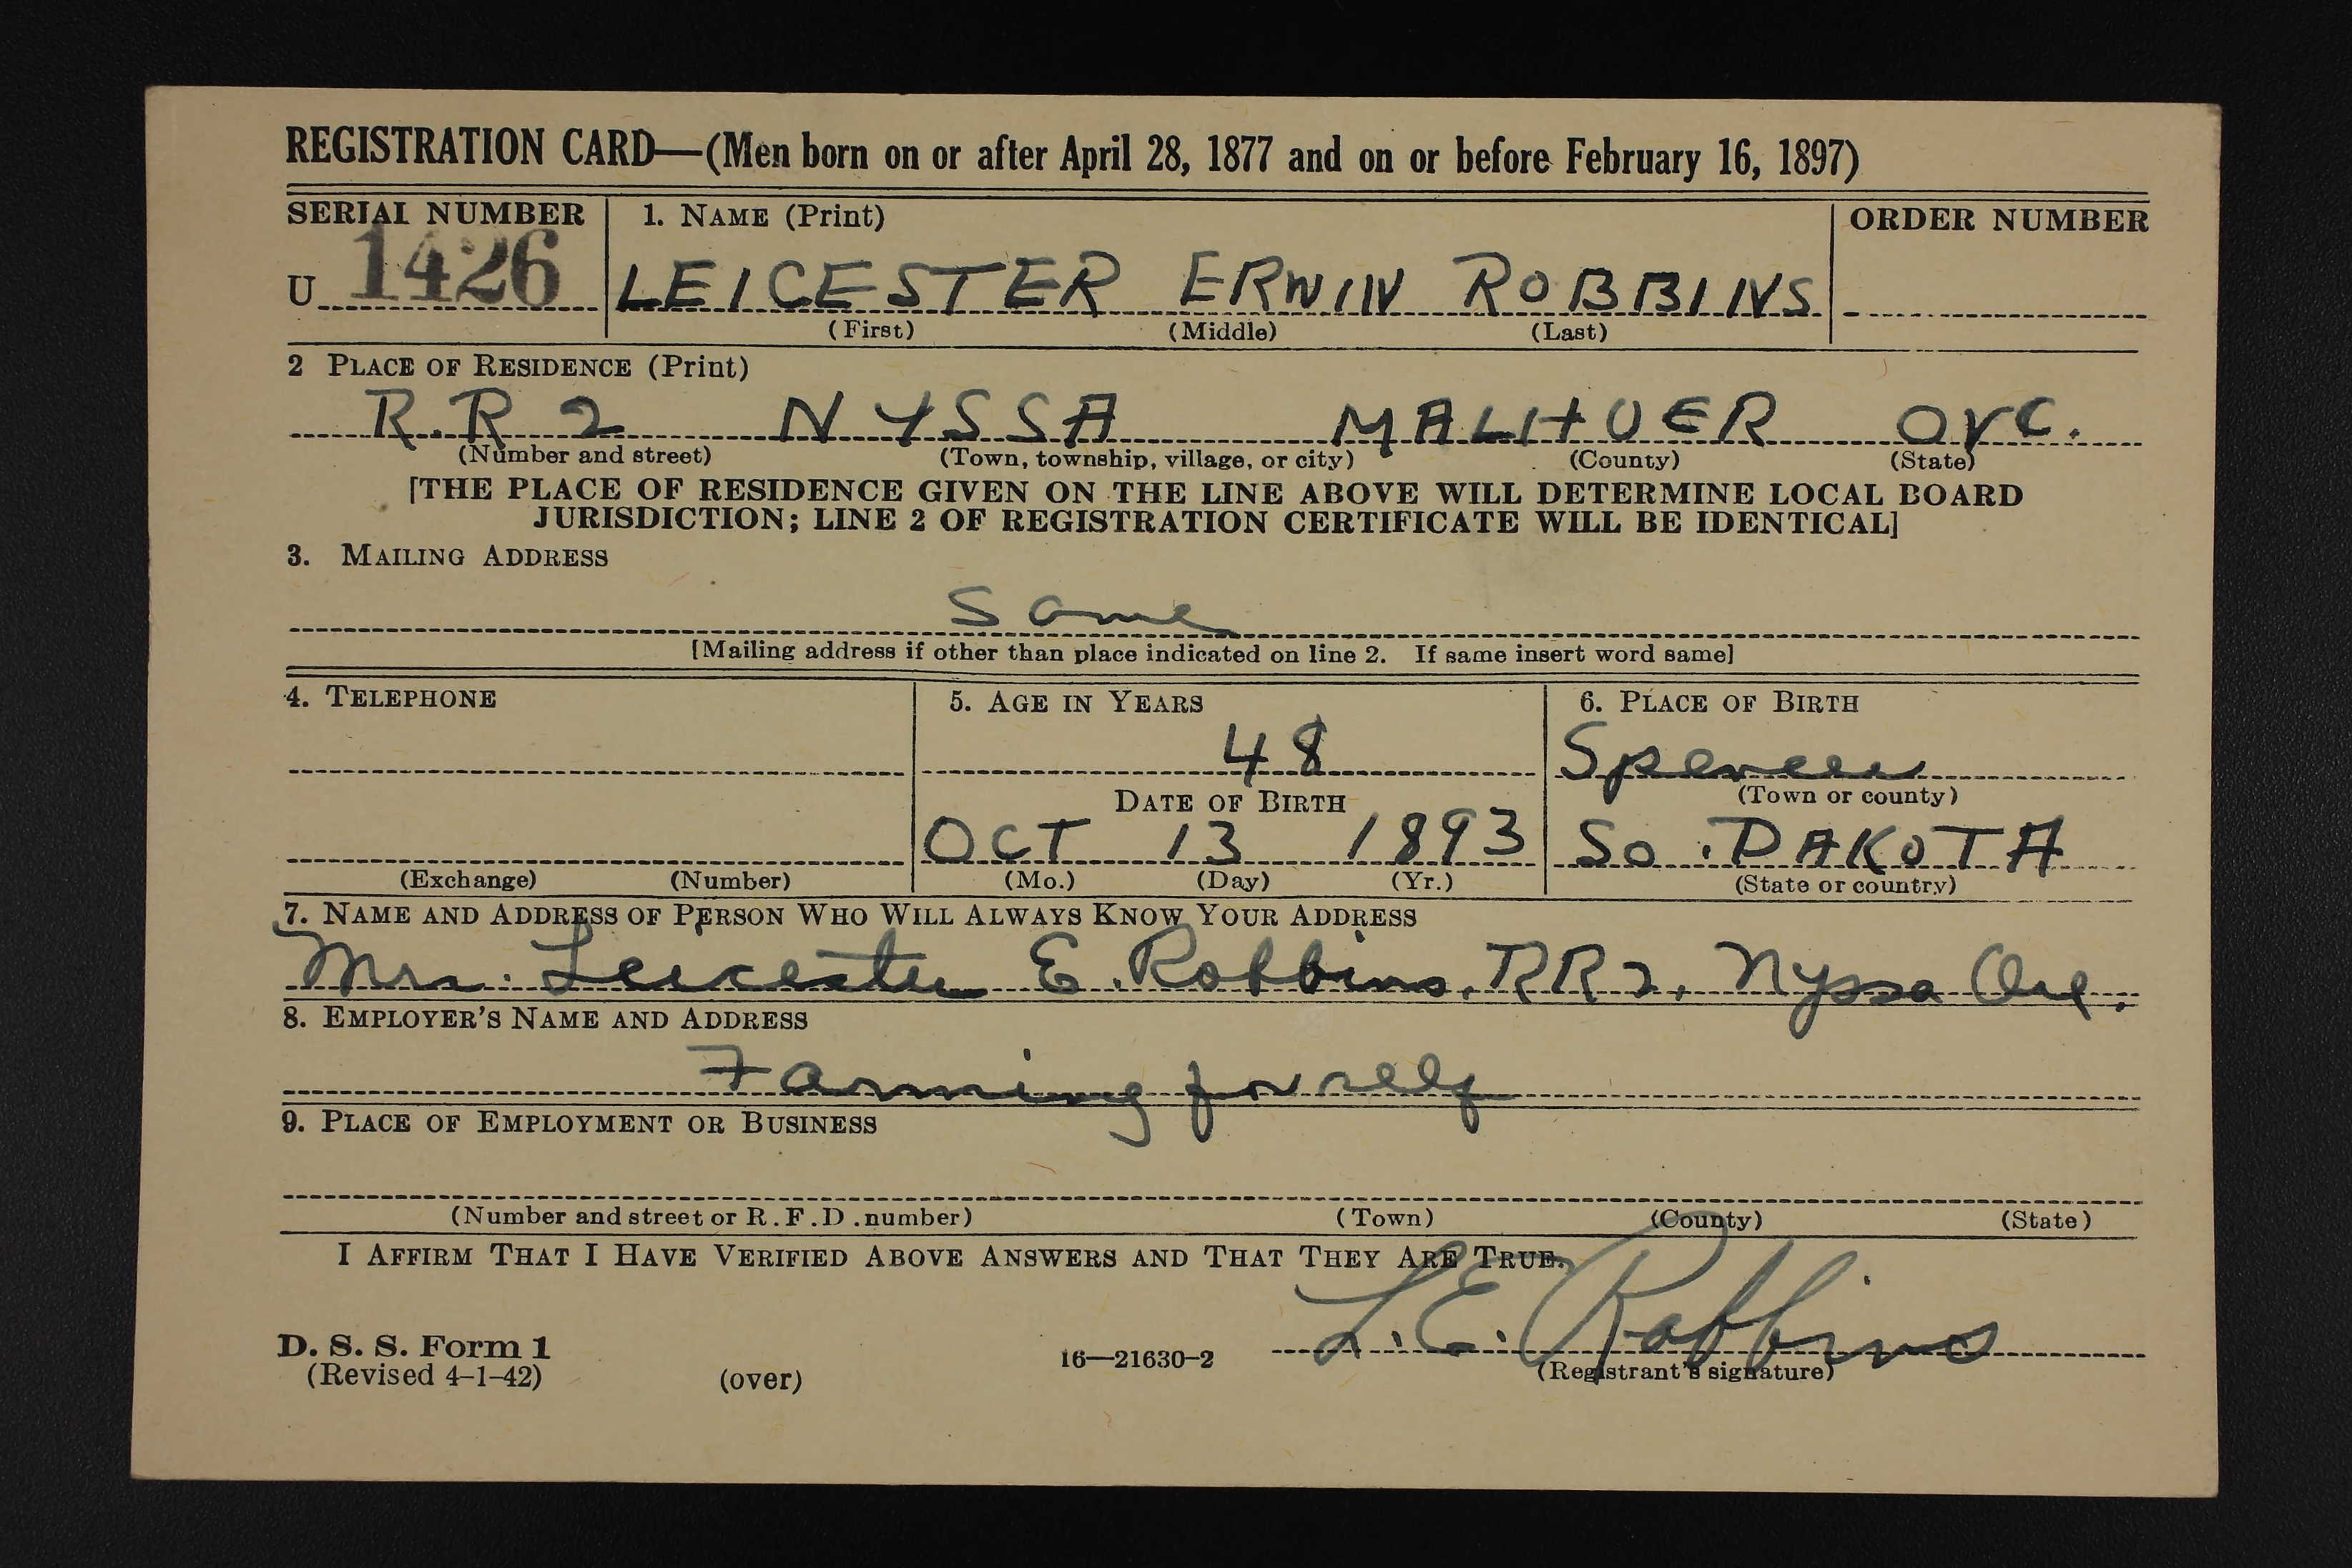 REGISTRATION CARD—(Men born on or after April 28, 1877 and on or before February 16, 1897)
SERIAL NUMBER 1. NAME (Print) ORDER NUMBER
U 1426 LEICESTER ERWIN ROBBINS
(First) (Middle) (Last)
2 PLACE OF RESIDENCE (Print)
R.R 2 NYSSA MALHUER Ore.
(Number and street) (Town, township, village, or city) (County) (State)
[THE PLACE OF RESIDENCE GIVEN ON THE LINE ABOVE WILL DETERMINE LOCAL BOARD
JURISDICTION; LINE 2 OF REGISTRATION CERTIFICATE WILL BE IDENTICAL]
3. MAILING ADDRESS
Same
[Mailing address if other than place indicated on line 2. If same insert word same]
4. TELEPHONE 5. AGE IN YEARS 6. PLACE OF BIRTH
48 Spencer
DATE OF BIRTH (Town or county)
OCT 13 1893 So. DAKOTA
(Exchange) (Number) (Mo.) (Day) (Yr.) (State or country)
7. NAME AND ADDRESS OF PERSON WHO WILL ALWAYS KNOW YOUR ADDRESS
Mrs. Leicester E. Robbins, RR2, Nyssa Ore.
8. EMPLOYER'S NAME AND ADDRESS
Farming for self
9. PLACE OF EMPLOYMENT OR BUSINESS
(Number and street or R.F.D. number) (Town) (County) (State)
I AFFIRM THAT I HAVE VERIFIED ABOVE ANSWERS AND THAT THEY ARE TRUE.
L.E. Robbins
D. S. S. Form 1
(Revised 4-1-42) (over) 16—21630-2 (Registrant's signature)